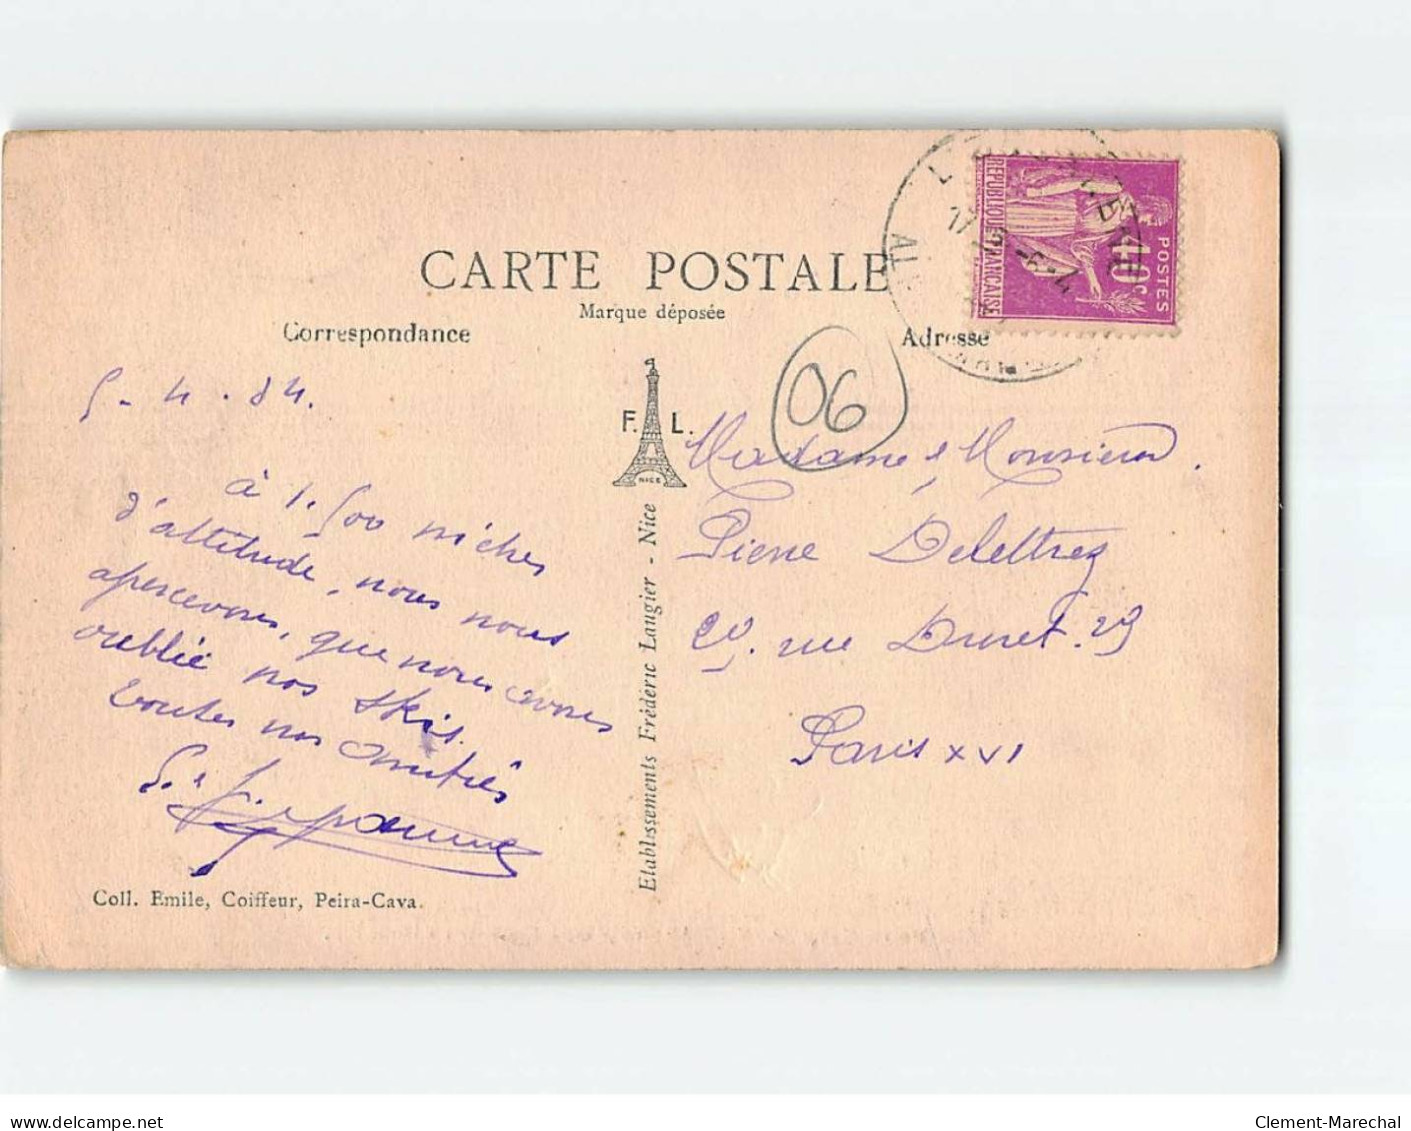 CARTE POSTALE
Marque déposée
Correspondance
Adresse
POSTES
40c
REPUBLIQUE FRANÇAISE
06
F. L.
NICE
5-4.34.
à 1.500 mètres
d'altitude, nous nous
apercevons, que nous avons
oublié nos skis.
toutes nos amitiés
Madame & Monsieur
Pierre Delettrez
29, rue Duret. 29
Paris XVI
Etablissements Frédéric Laugier - Nice
Coll. Emile, Coiffeur, Peira-Cava.
delcampe.net
Clement-Marechal